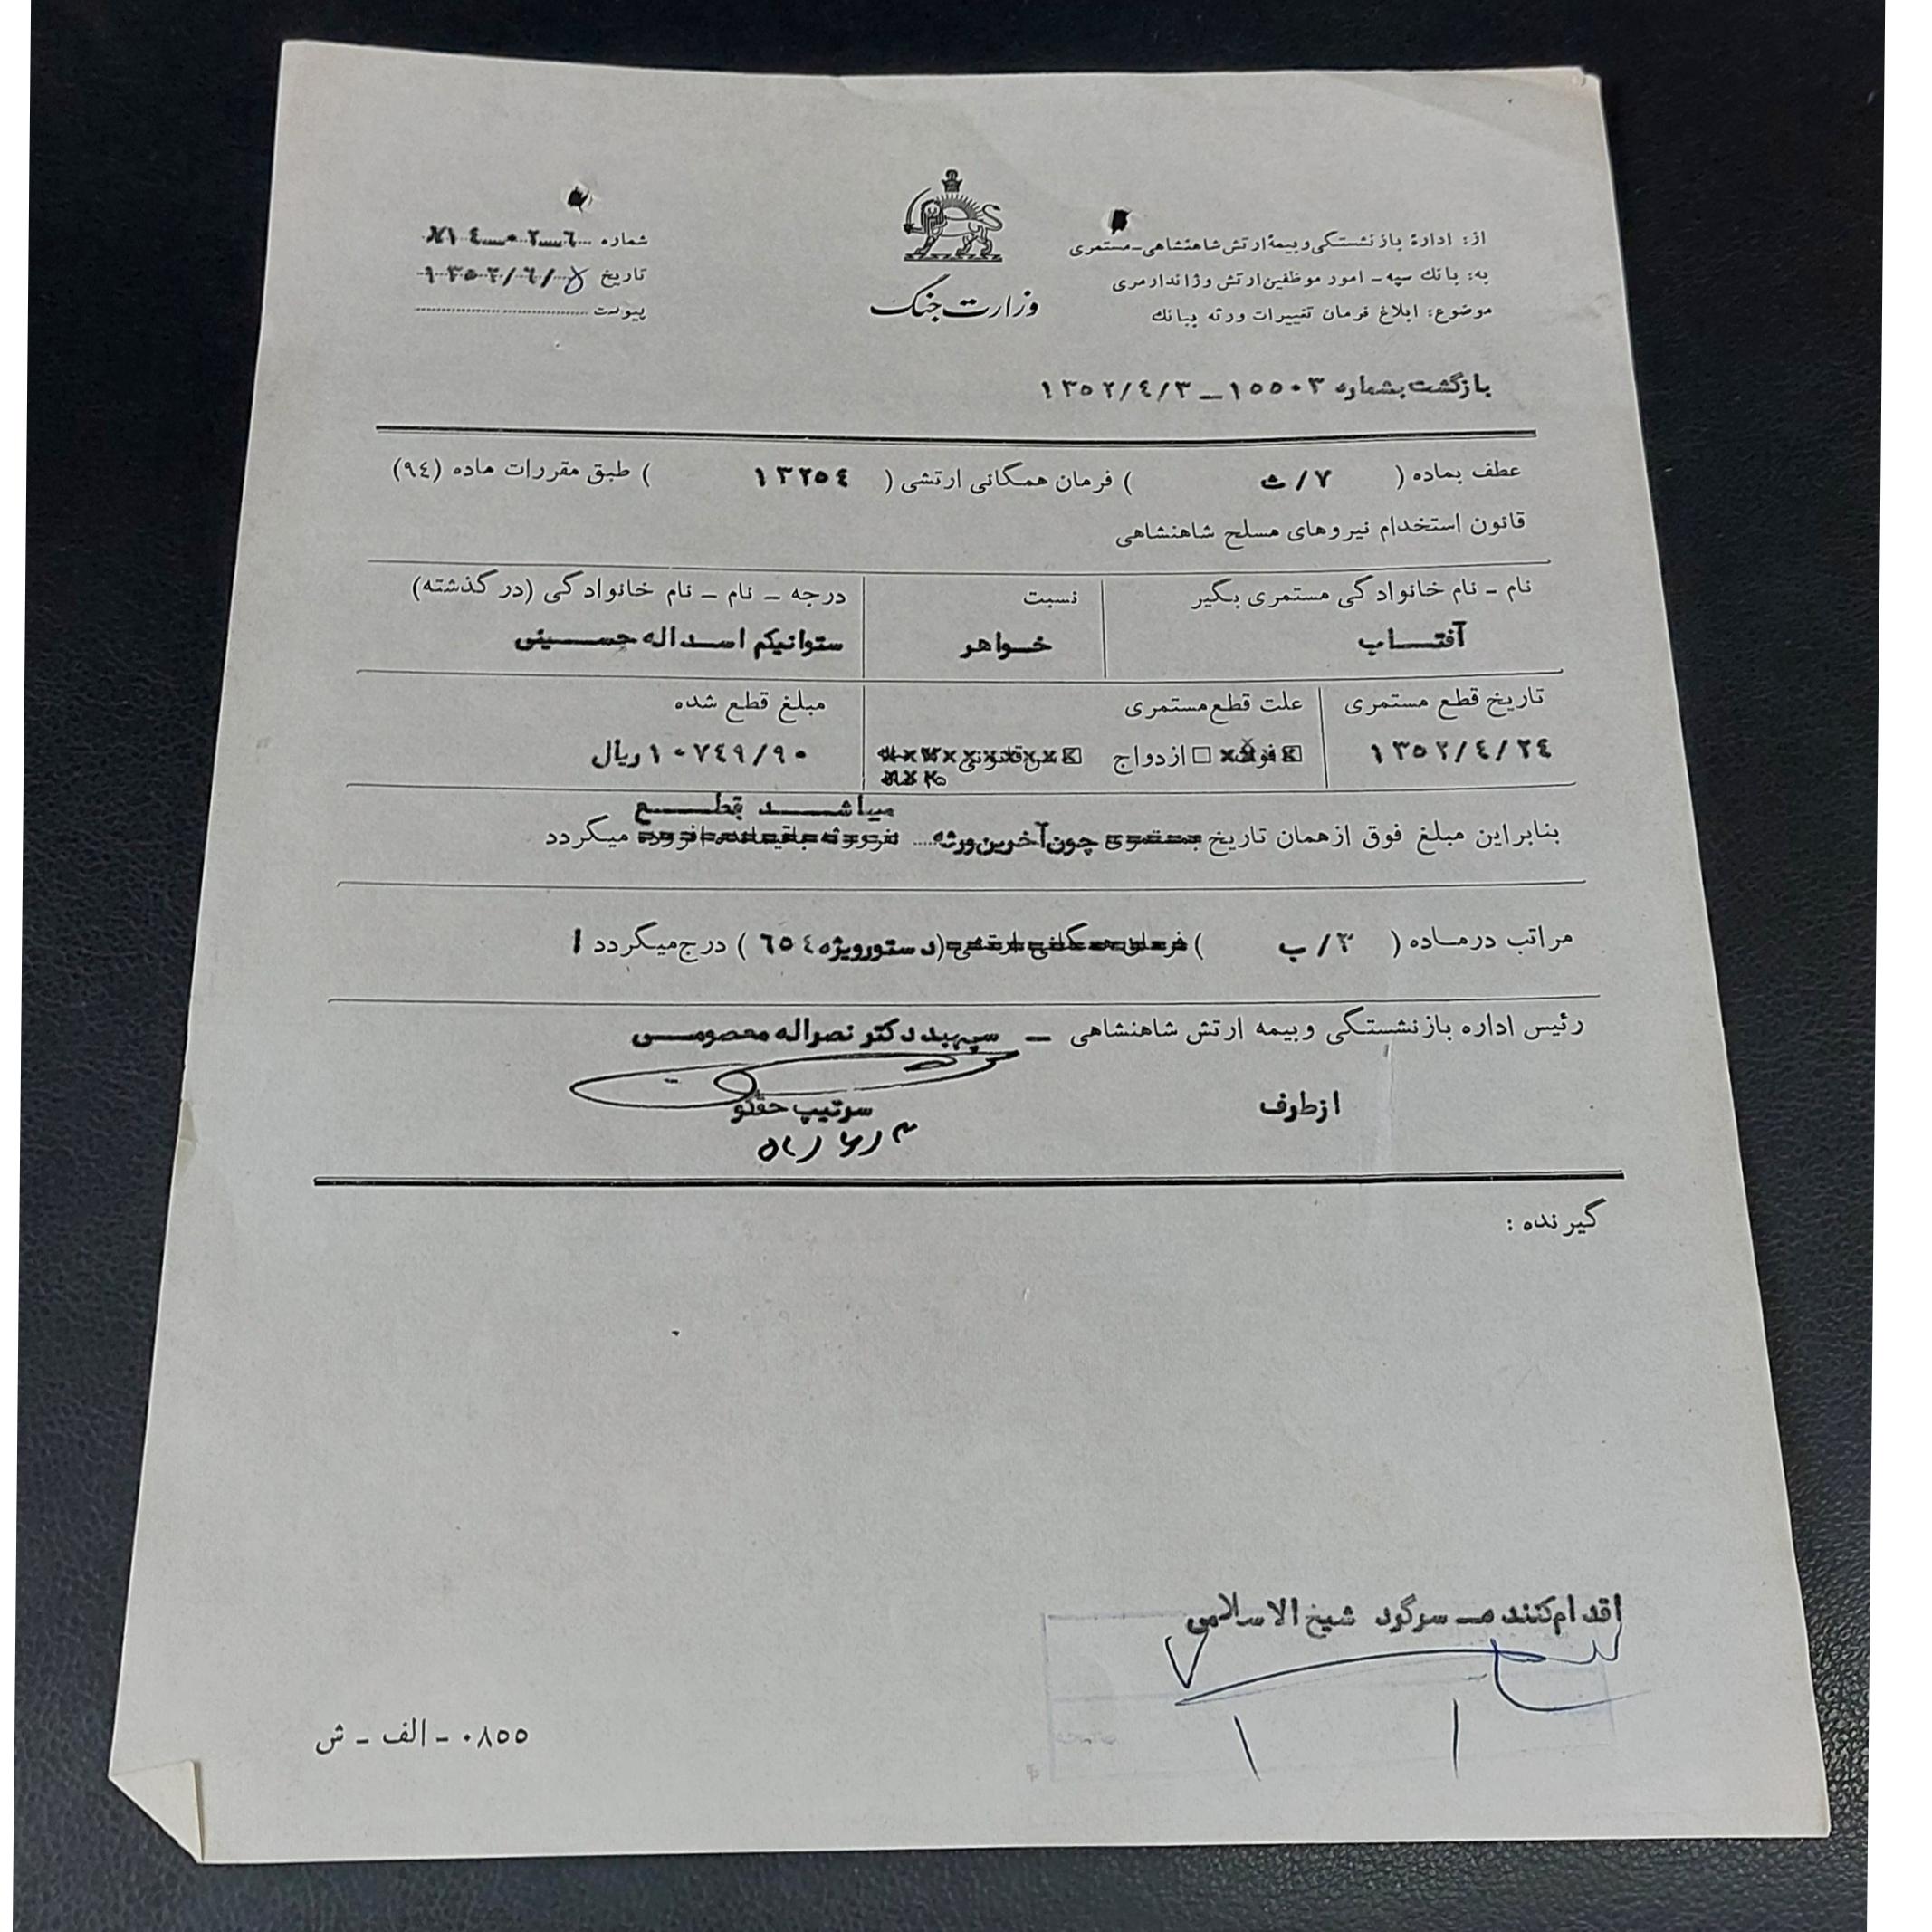 از: ادارهٔ بازنشستگی و بیمهٔ ارتش شاهنشاهی ـ مستمری
به: بانك سپه ـ امور موظفین ارتش و ژاندارمری
موضوع: ابلاغ فرمان تغییرات ورثه ببانك
وزارت جنگ
شماره
تاریخ ۱۳۵۲/۶/
پیوست
بازگشت بشماره ۱۵۵۰۳ ـ ۱۳۵۲/٤/۳
عطف بماده ( ۷/ث ) فرمان همگانی ارتشی ( ۱۳۲۵٤ ) طبق مقررات ماده (۹٤)
قانون استخدام نیروهای مسلح شاهنشاهی
نام ـ نام خانوادگی مستمری بگیر نسبت درجه ـ نام ـ نام خانوادگی (درگذشته)
آفتاب خواهر ستوانیکم اسداله حسینی
تاریخ قطع مستمری علت قطع مستمری مبلغ قطع شده
۱۳۵۲/٤/۲٤ فوت ازدواج ۱۰۷٤۹/۹۰ ریال
میباشد قطع
بنابراین مبلغ فوق از همان تاریخ چون آخرین ورثه میگردد
مراتب در ماده ( ۳/ب ) فرمان همگانی ارتشی (دستور ویژه ٦۵٤ ) درج میگردد
رئیس اداره بازنشستگی و بیمه ارتش شاهنشاهی ـ سپهبد دکتر نصراله معصومی
از طرف سرتیپ حقگو
گیرنده :
اقدام کننده ـ سرگرد شیخ الاسلامی
۰۸۵۵ ـ الف ـ ش